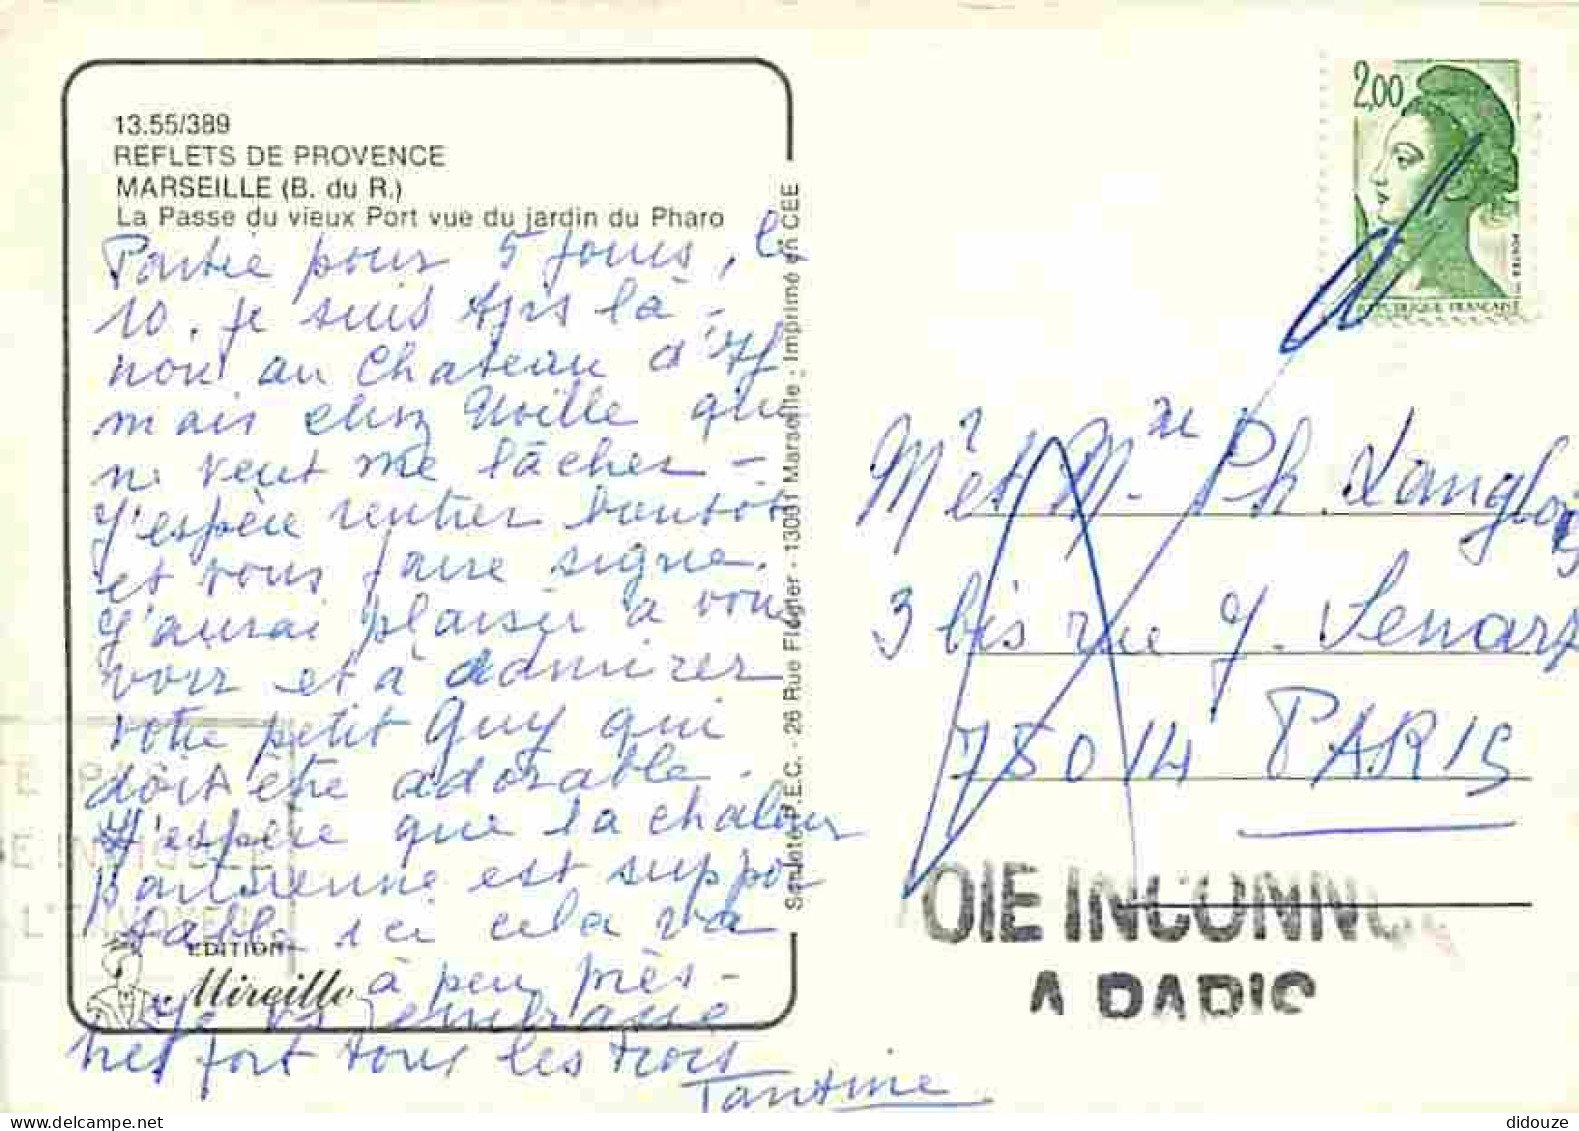 13.55/389
REFLETS DE PROVENCE
MARSEILLE (B. du R.)
La Passe du vieux Port vue du jardin du Pharo
Partie pour 5 jours, le
10. je suis tjrs là -
non au Chateau d'If
mais chez qui
ne veut me lâcher -
J'espère rentrer bientôt
et vous faire signe.
J'aurai plaisir à vous
voir et à admirer
votre petit Guy qui
doit être adorable.
J'espère que la chaleur
parisienne est suppor
table, ici cela va
à peu près -
Je vs embrasse
très fort tous les trois
Tantine
EDITION
Mireille
Société P.E.C. - 26 Rue - 13001 Marseille - Imprimé en CEE
2,00
REPUBLIQUE FRANCAISE
POSTES
Mr et Mme Ph. Langlois
3 bis rue J. Senart
75014 PARIS
OIE INCONNU
A PARIS
didouze